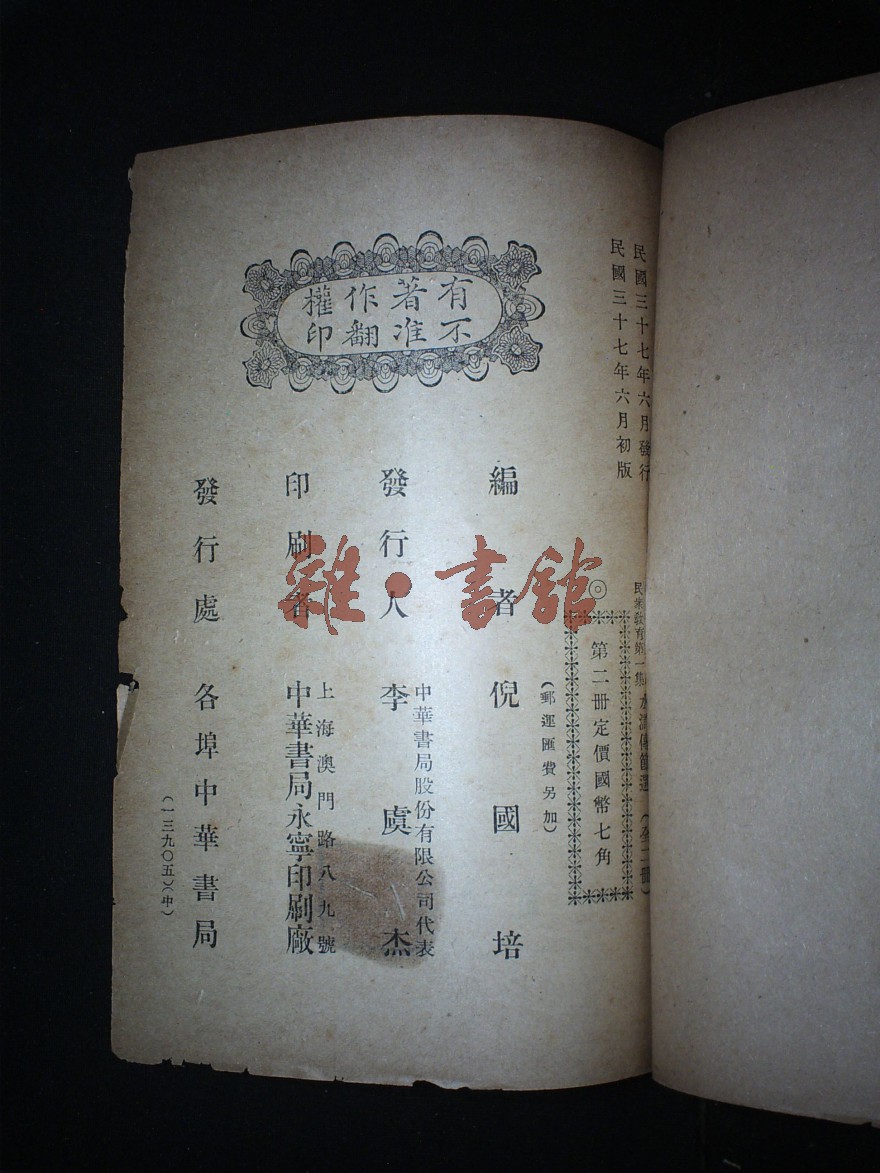 民國三十七年六月發行
民國三十七年六月初版
民衆教育第一集水滸傳節選（全二冊）
◎
第二冊定價國幣七角
（郵運匯費另加）
有著作權
不准翻印
編者 倪國培
發行人 李虞杰
中華書局股份有限公司代表
印刷者
上海澳門路八九號
中華書局永寧印刷廠
發行處 各埠中華書局
（一三九〇五）（中）
雜·書館